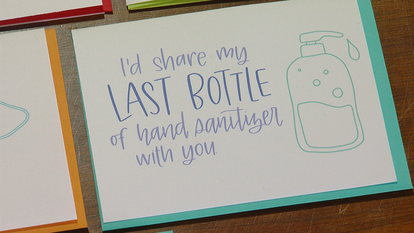 I'd share my
LAST BOTTLE
of hand sanitizer
with you